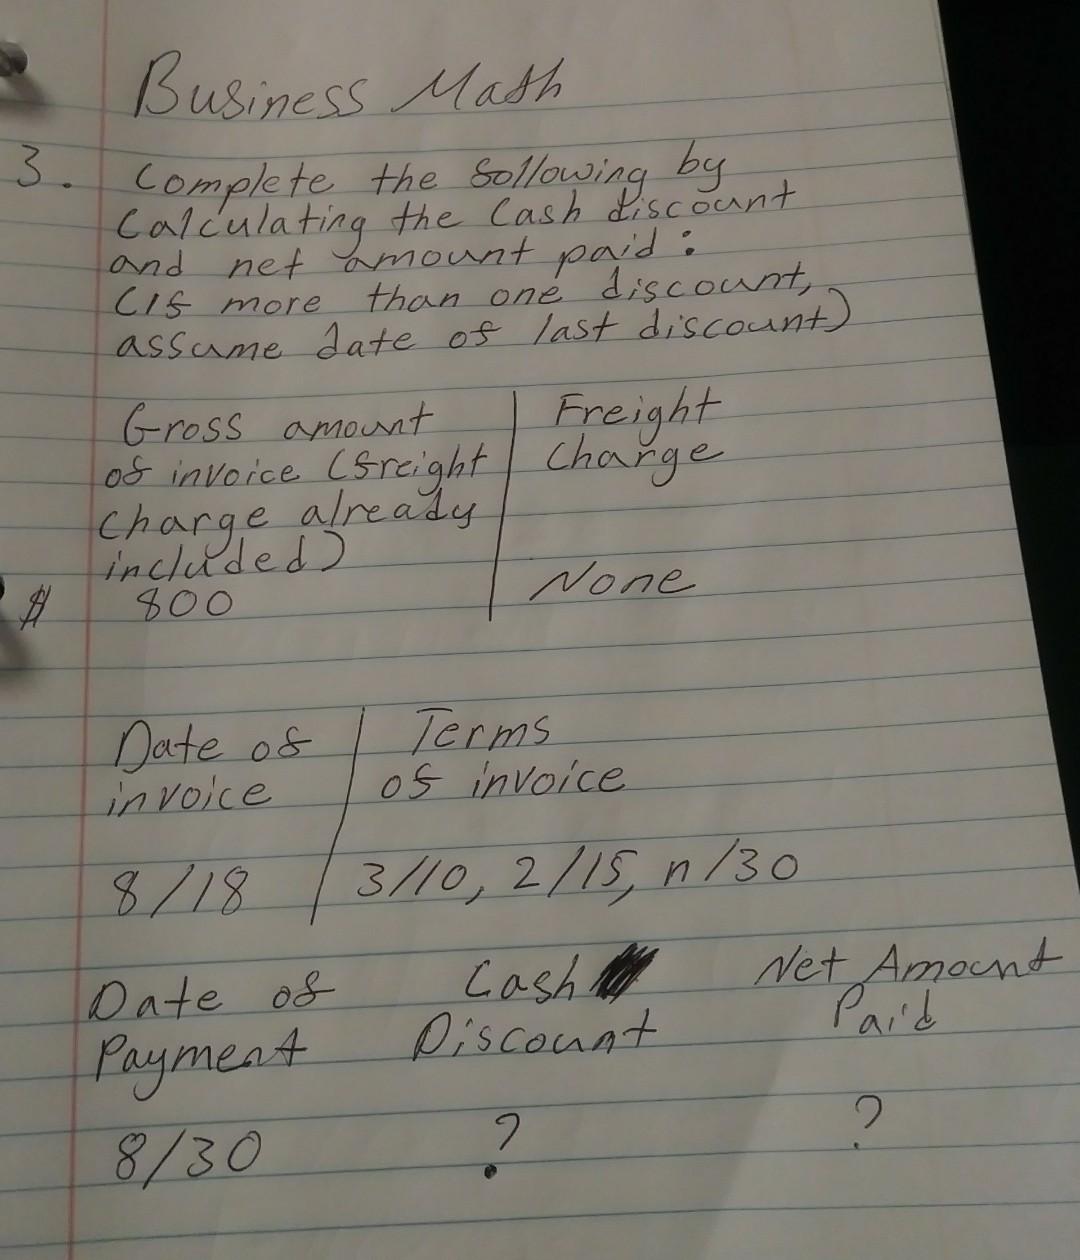 Business Math
3. Complete the following by
Calculating the Cash discount
and net amount paid:
(If more than one discount,
assume date of last discount)
Gross amount
of invoice (freight
charge already
included)
$ 800
Freight
Charge
None
Date of
invoice
8/18
Terms
of invoice
3/10, 2/15, n/30
Date of
Payment
8/30
Cash
Discount
?
Net Amount
Paid
?